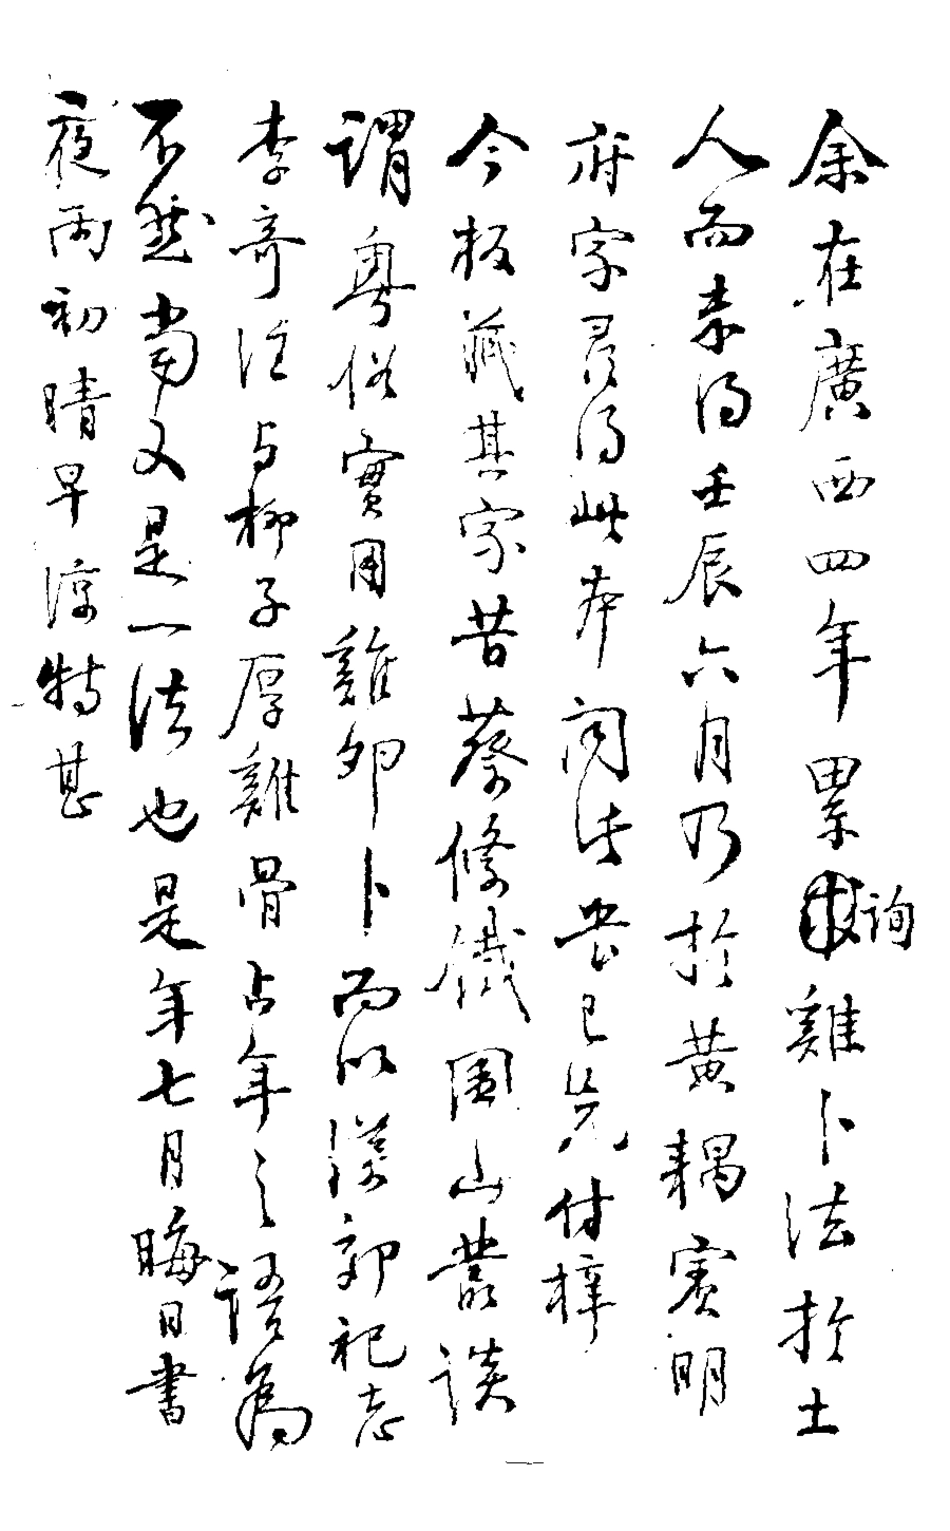 余在廣西四年累詢雞卜法於土
人而未得壬辰六月乃於黃耦賓明
府家尋得此本閱法農已先付梓
今板藏其家昔蔡絛鐵圍山叢談
謂粵俗實用雞卵卜而以漢郊祀志
李奇注與柳子厚雞骨占年之語為
不然當又是一法也是年七月晦日書
夜雨初晴早涼特甚